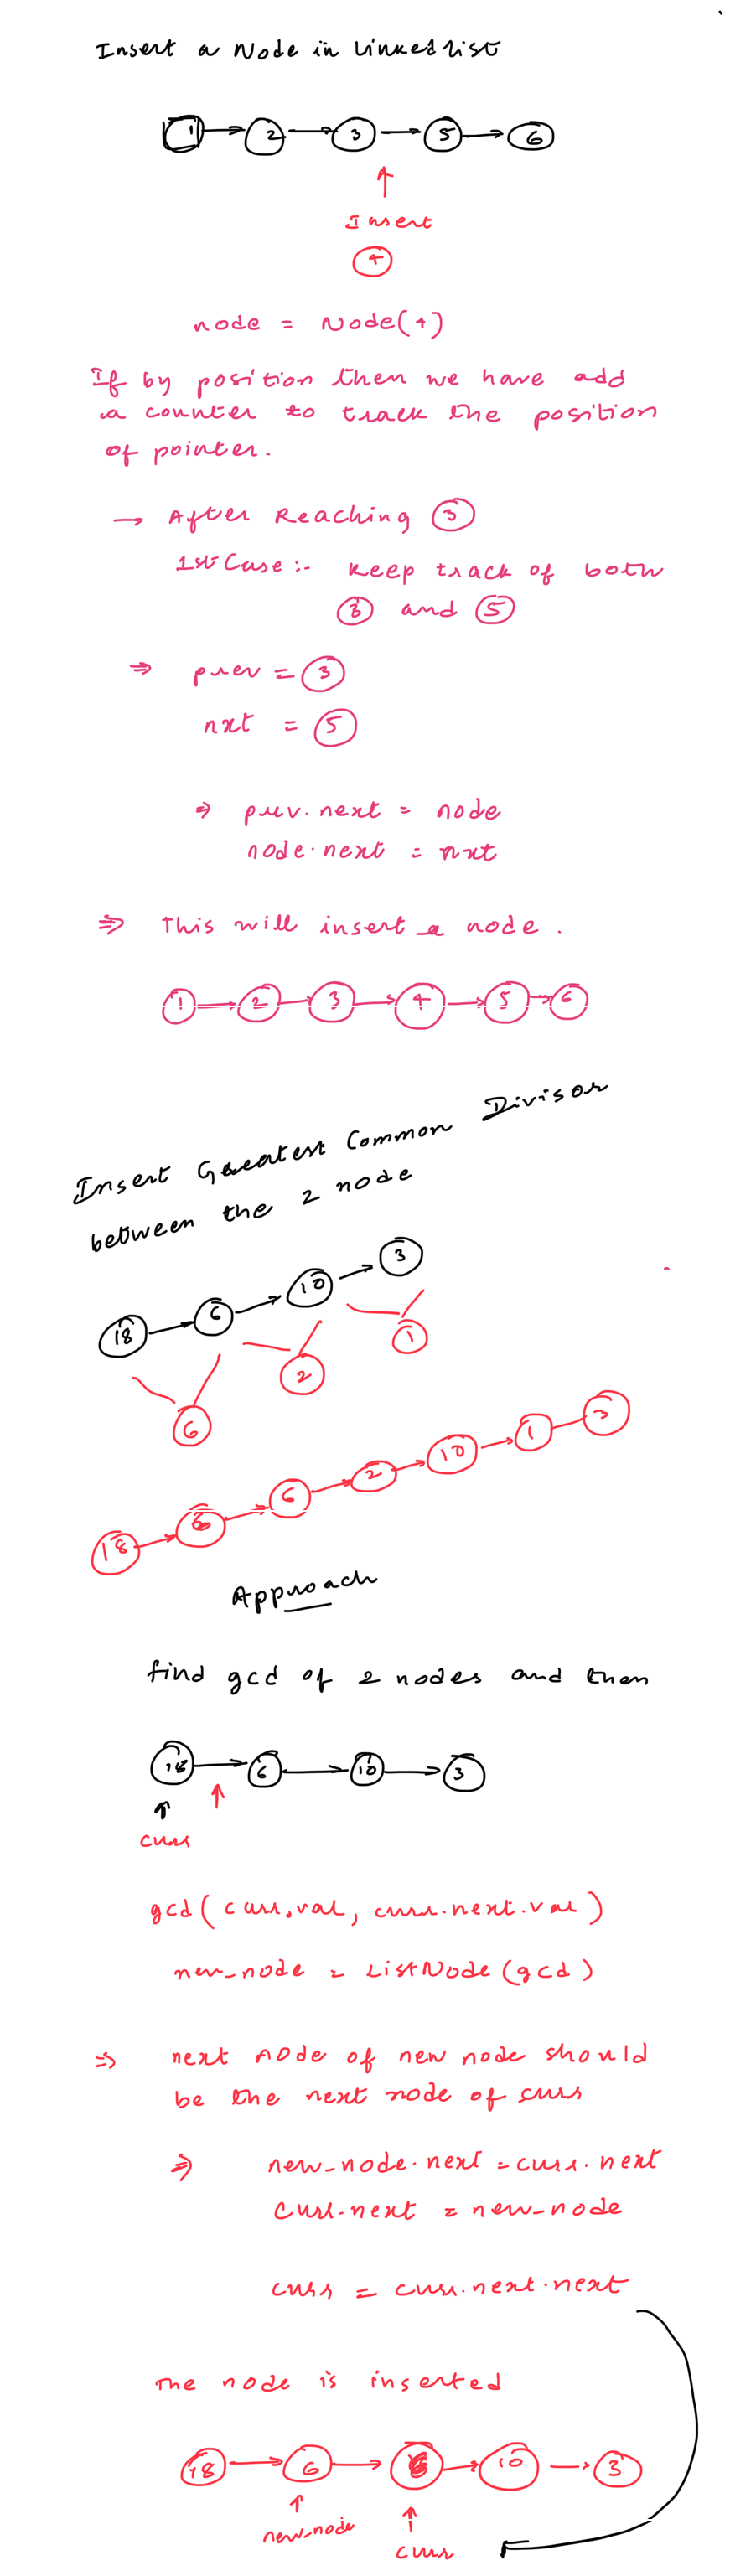 Insert a Node in Linked list
1 2 3 5 6
Insert
4
node = Node(4)
If by position then we have add
a counter to track the position
of pointer.
→ After Reaching 3
1st Case :- Keep track of both
3 and 5
⇒ prev = 3
nxt = 5
⇒ prev.next = node
node.next = nxt
⇒ This will insert a node.
1 2 3 4 5 6
Insert Greatest Common Divisor
between the 2 node
18 6 10 3
6 2 1
18 6 6 2 10 1 3
Approach
find gcd of 2 nodes and then
18 6 10 3
curr
gcd(curr.val, curr.next.val)
new_node = ListNode(gcd)
⇒ next node of new node should
be the next node of curr
⇒ new_node.next = curr.next
curr.next = new_node
curr = curr.next.next
The node is inserted
18 6 6 10 3
new_node
curr